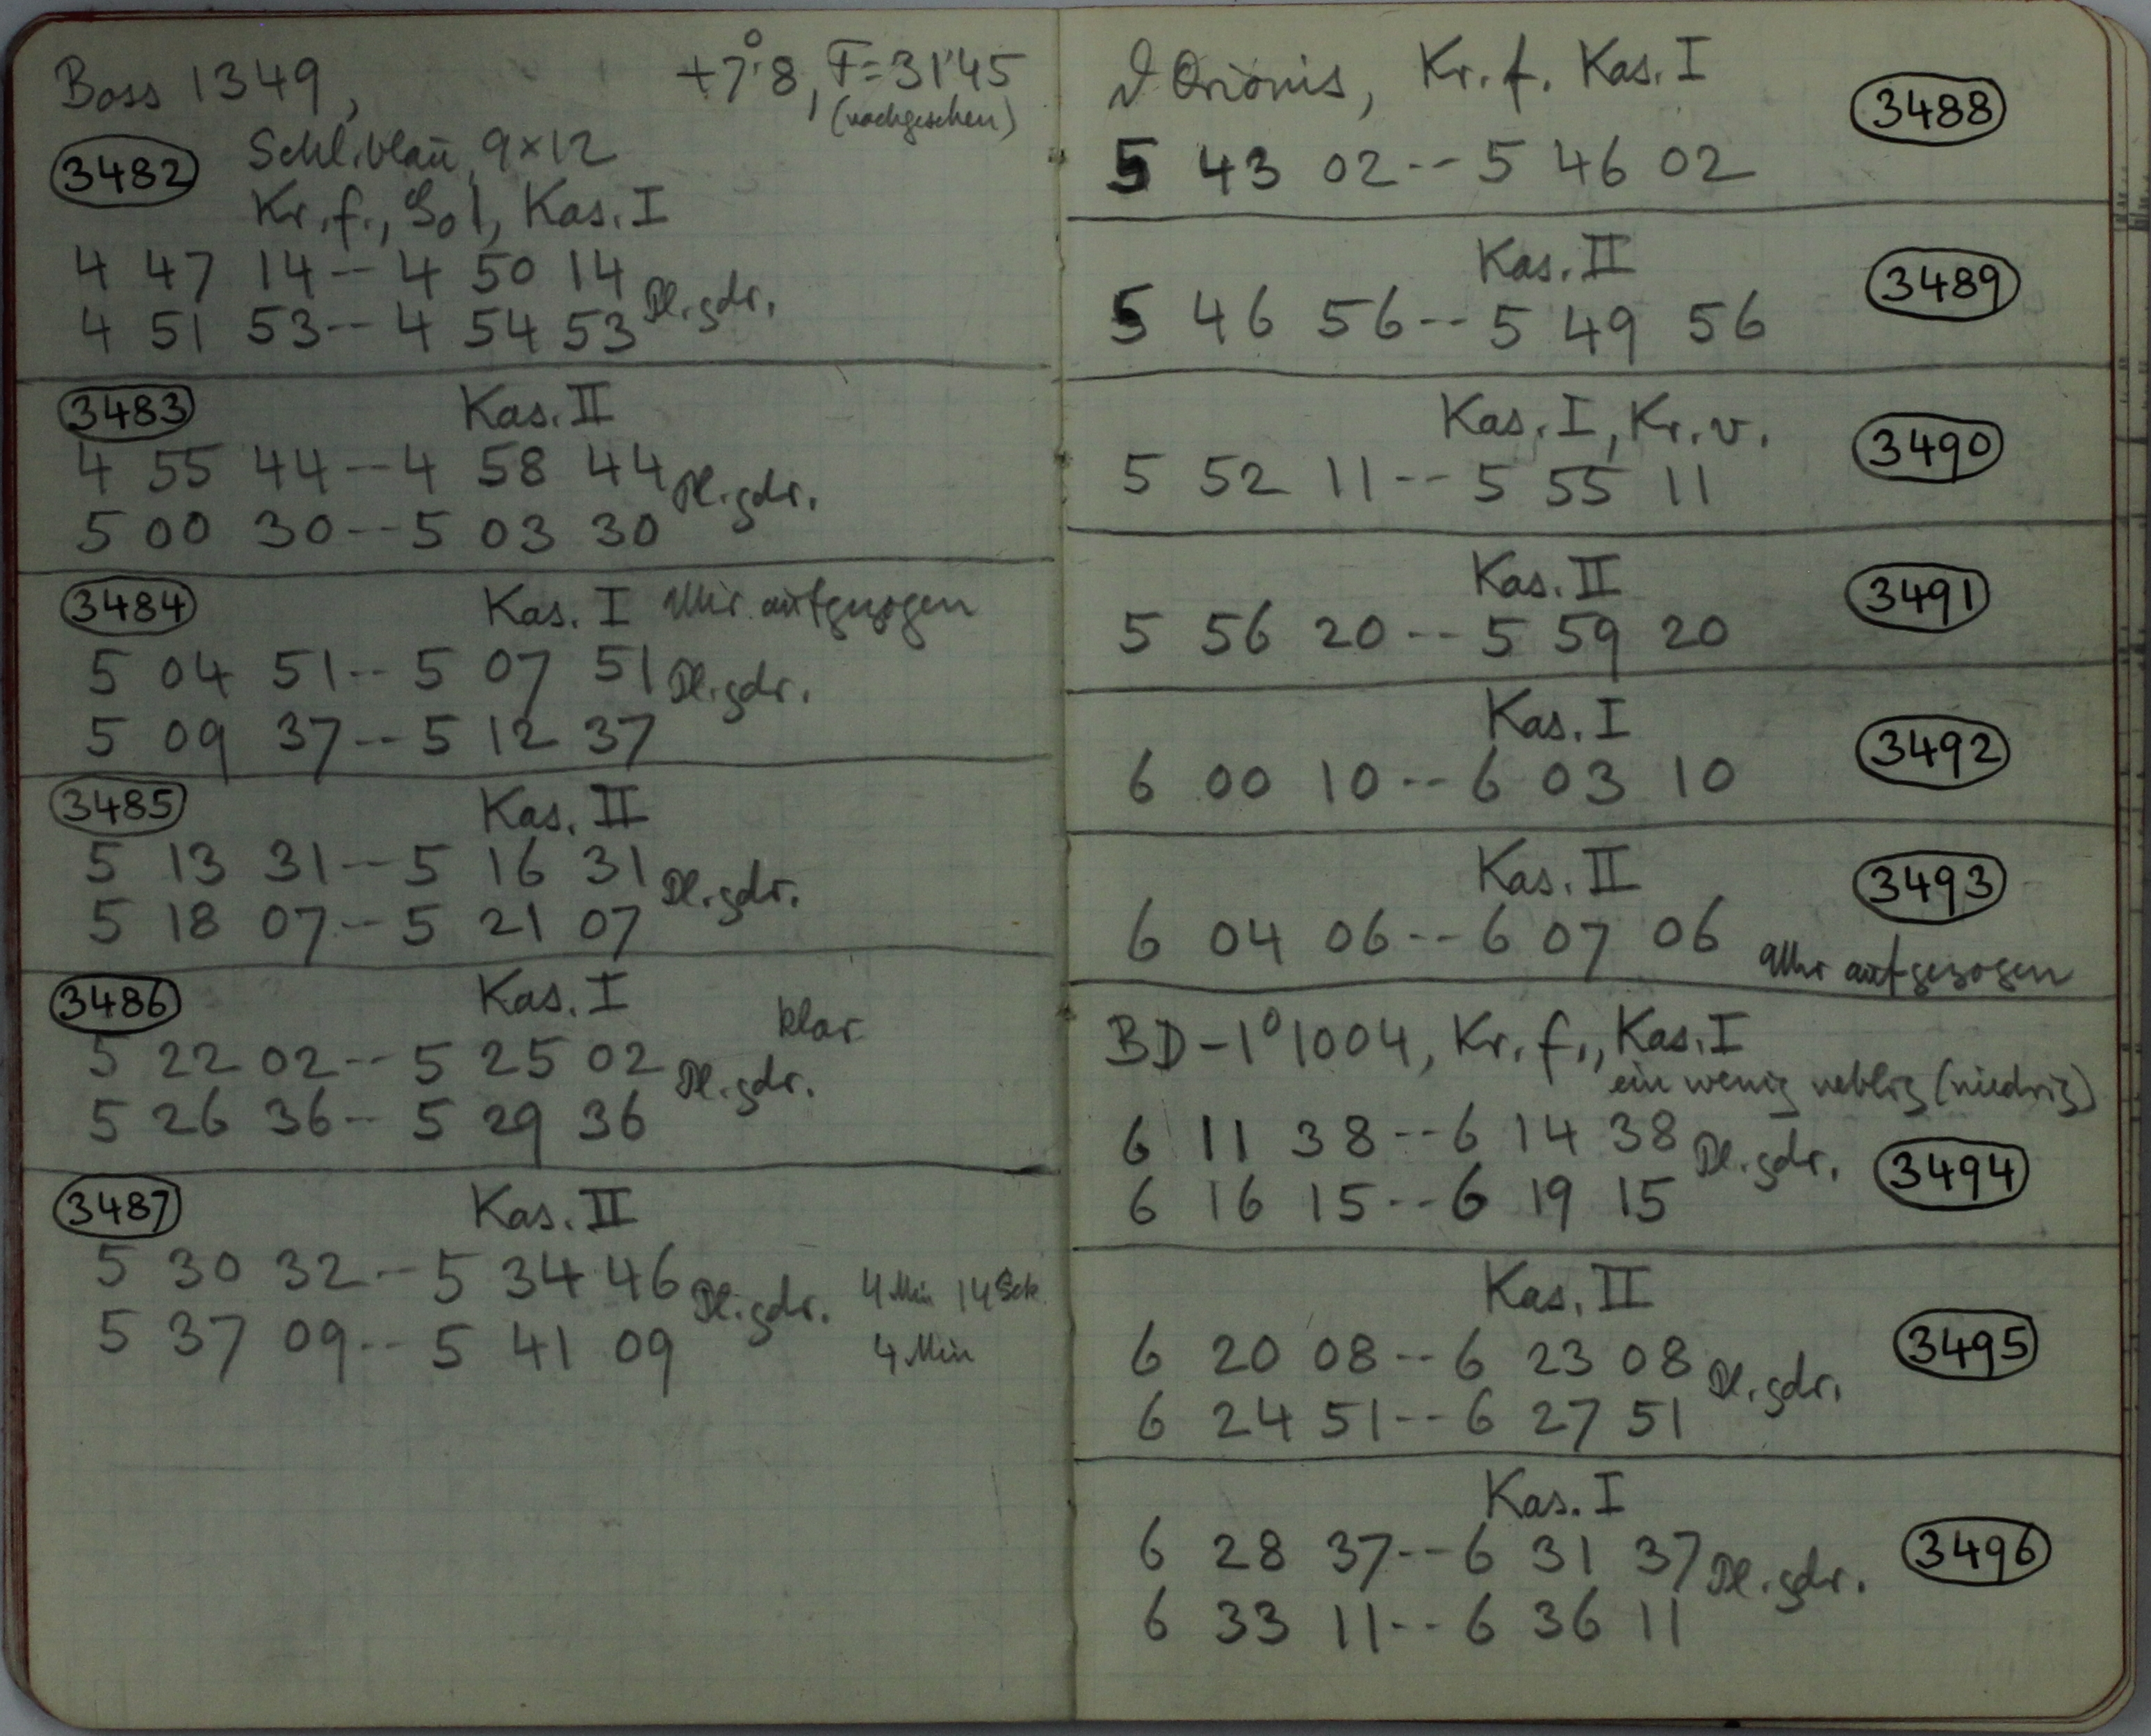 Boss 1349, +7°.8, F=31'45
(nachgesehen)
3482 Schl. blau, 9×12
Kr. f., Kas. I
4 47 14 -- 4 50 14
Pl. gdr.
4 51 53 -- 4 54 53
3483 Kas. II
4 55 44 -- 4 58 44
Pl. gdr.
5 00 30 -- 5 03 30
3484 Kas. I Uhr aufgezogen
5 04 51 -- 5 07 51
Pl. gdr.
5 09 37 -- 5 12 37
3485 Kas. II
5 13 31 -- 5 16 31
Pl. gdr.
5 18 07 -- 5 21 07
3486 Kas. I
klar
5 22 02 -- 5 25 02
Pl. gdr.
5 26 36 -- 5 29 36
3487 Kas. II
5 30 32 -- 5 34 46 4 Min 14 Sek
Pl. gdr.
5 37 09 -- 5 41 09 4 Min
ϑ Orionis, Kr. f. Kas. I
3488
5 43 02 -- 5 46 02
Kas. II 3489
5 46 56 -- 5 49 56
Kas. I, Kr. v. 3490
5 52 11 -- 5 55 11
Kas. II 3491
5 56 20 -- 5 59 20
Kas. I 3492
6 00 10 -- 6 03 10
Kas. II 3493
6 04 06 -- 6 07 06
Uhr aufgezogen
BD -1° 1004, Kr. f., Kas. I
ein wenig neblig (niedrig)
6 11 38 -- 6 14 38
Pl. gdr. 3494
6 16 15 -- 6 19 15
Kas. II
3495
6 20 08 -- 6 23 08
Pl. gdr.
6 24 51 -- 6 27 51
Kas. I
6 28 37 -- 6 31 37 3496
Pl. gdr.
6 33 11 -- 6 36 11